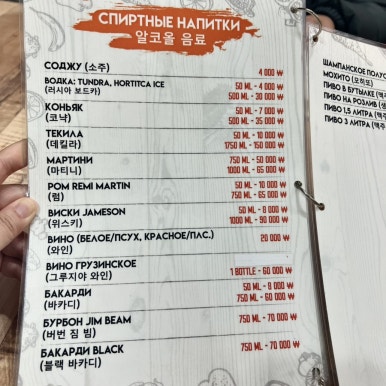 СПИРТНЫЕ НАПИТКИ
알코올 음료
СОДЖУ (소주) 4 000 ₩
ВОДКА: TUNDRA, HORTITCA ICE 50 ML - 4 000
(러시아 보드카) 500 ML - 30 000 ₩
КОНЬЯК 50 ML - 7 000
(코냑) 500 ML - 35 000 ₩
ТЕКИЛА 50 ML - 10 000
(데킬라) 1750 ML - 150 000 ₩
МАРТИНИ 750 ML - 50 000
(마티니) 1000 ML - 65 000 ₩
РОМ REMI MARTIN 50 ML - 10 000
(럼) 750 ML - 65 000 ₩
ВИСКИ JAMESON 50 ML - 8 000
(위스키) 1000 ML - 90 000 ₩
ВИНО (БЕЛОЕ/ПСУХ, КРАСНОЕ/ПЛС.) 20 000 ₩
(와인)
ВИНО ГРУЗИНСКОЕ
(그루지야 와인) 1 BOTTLE - 60 000 ₩
БАКАРДИ 50 ML - 8 000
(바카디) 750 ML - 60 000 ₩
БУРБОН JIM BEAM 750 ML - 70 000 ₩
(버번 짐 빔)
БАКАРДИ BLACK 750 ML - 70 000 ₩
(블랙 바카디)
ШАМПАНСКОЕ
МОХИТО (모히또)
ПИВО В БУТЫЛКЕ
ПИВО НА РОЗЛИВ
ПИВО 1,5 ЛИТРА
ПИВО 3 ЛИТРА